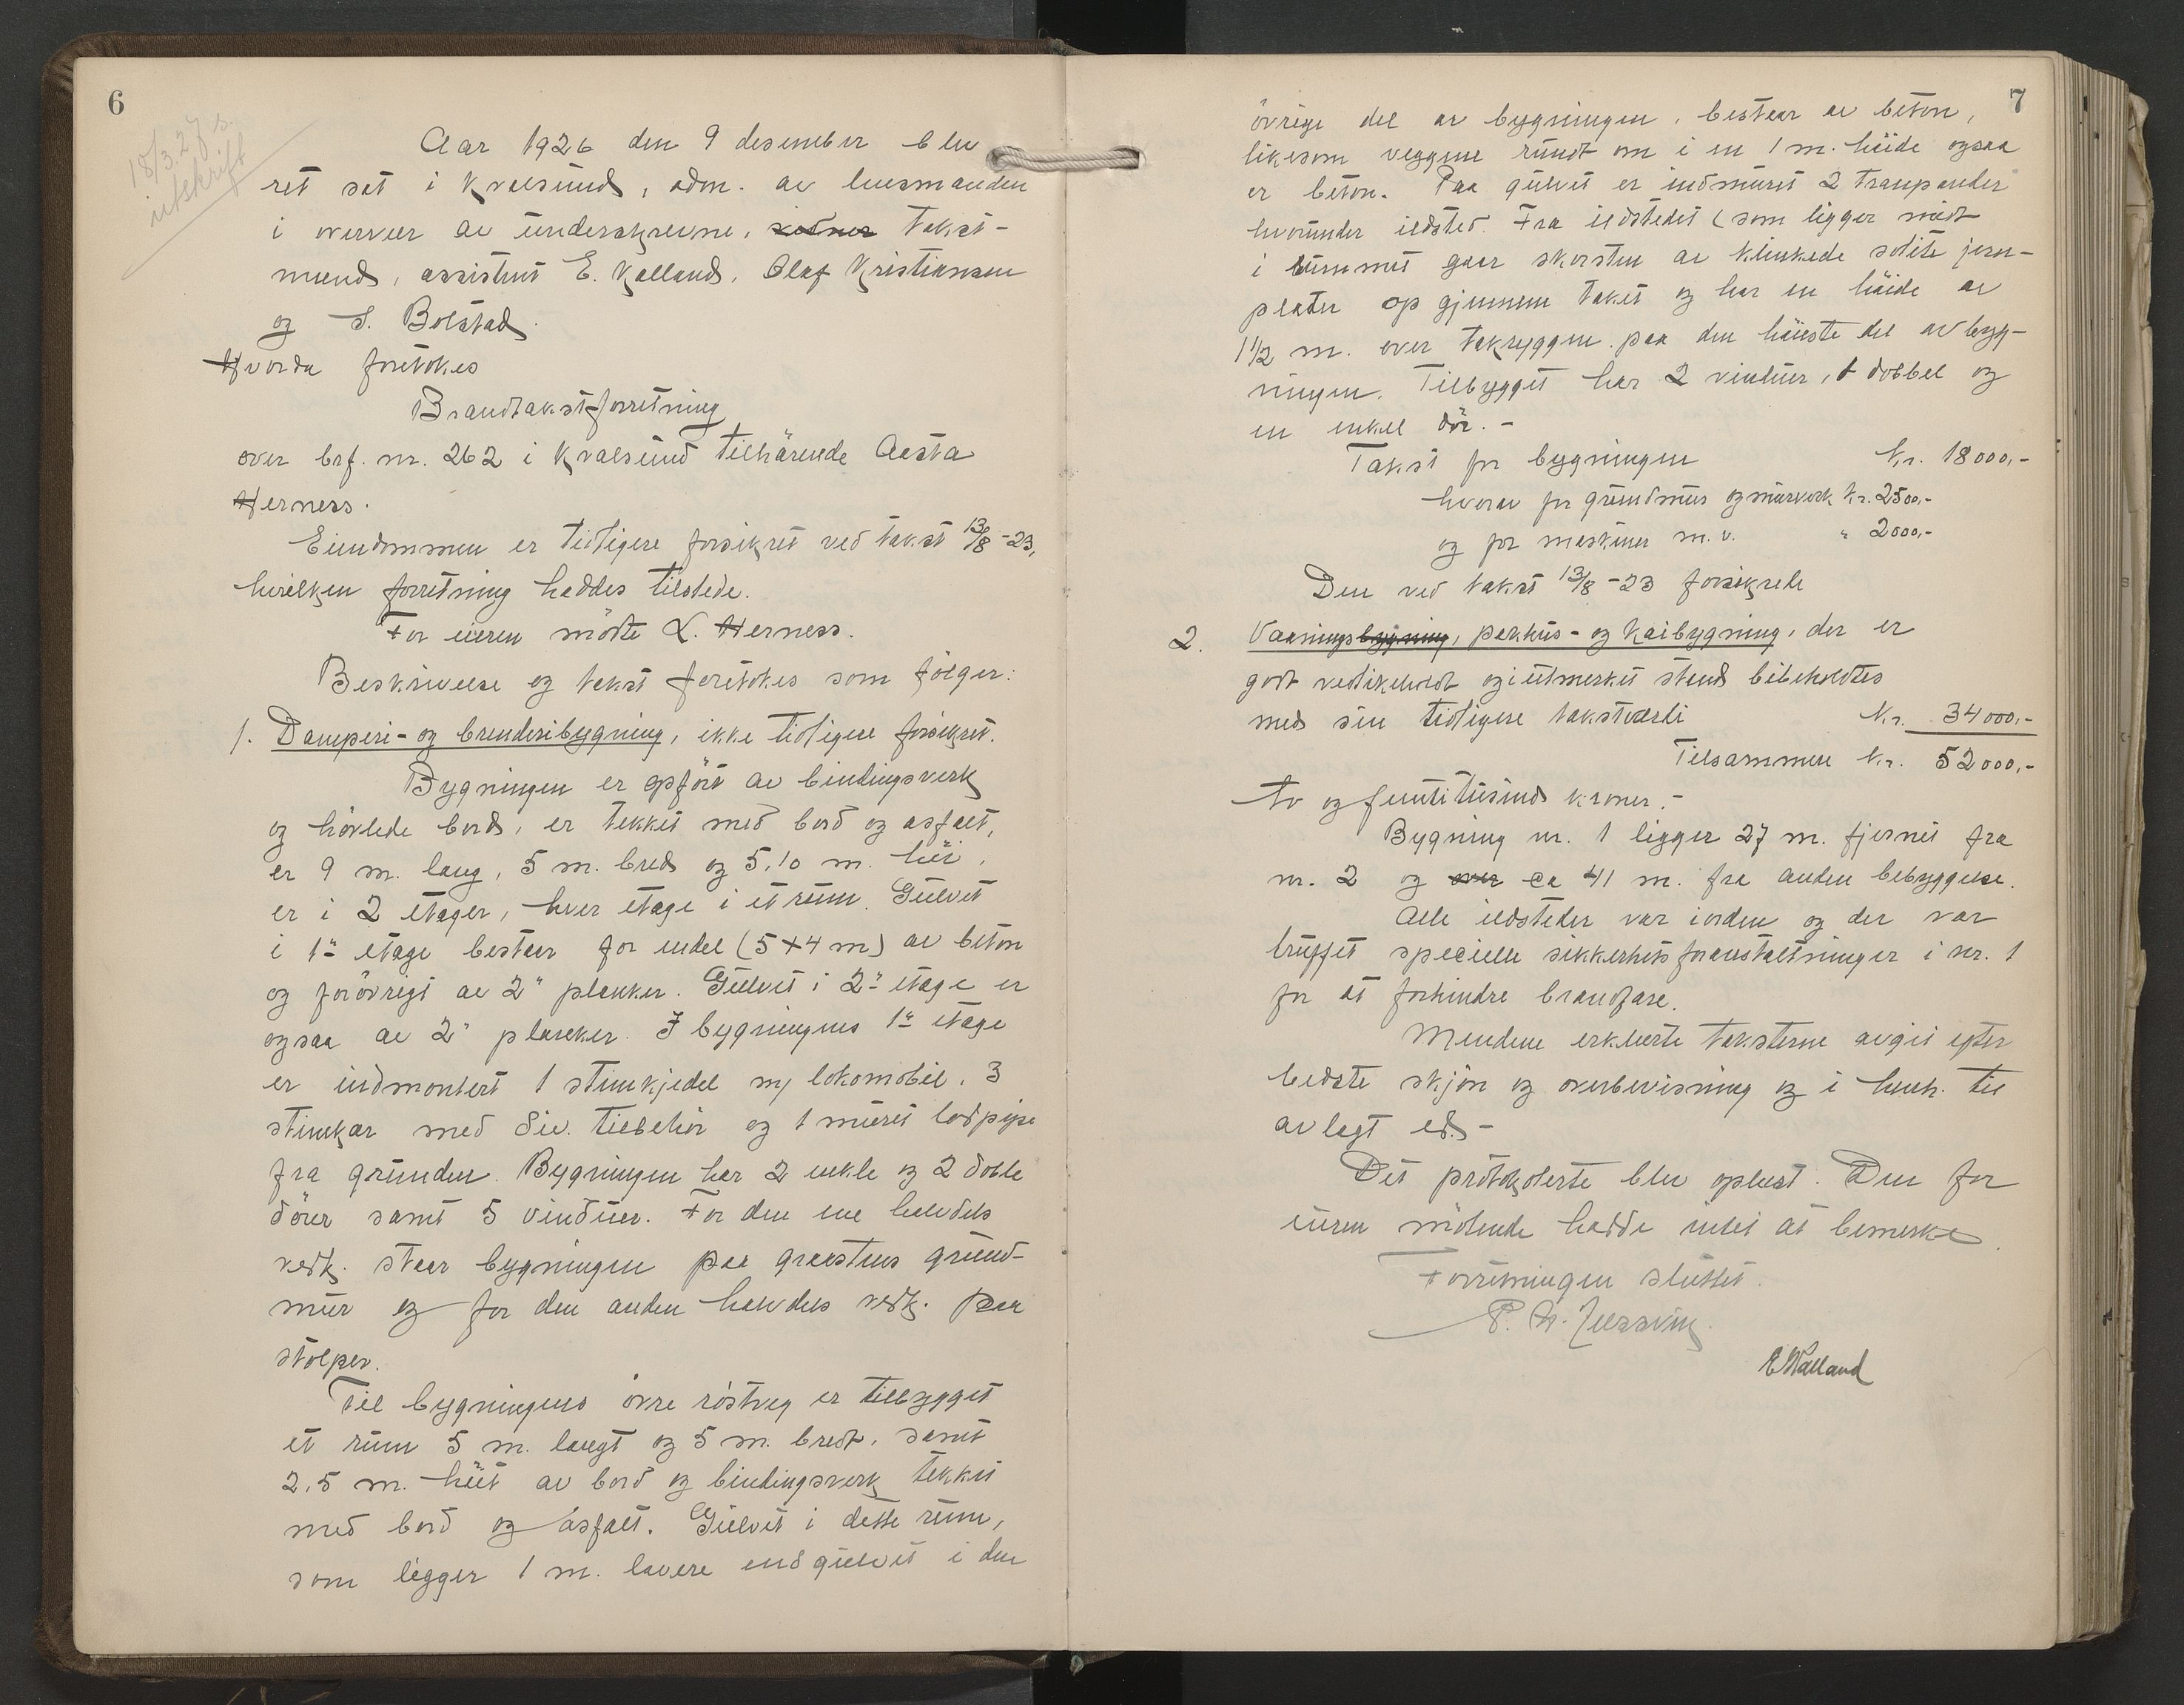 6
18/3.27 s.
utskrift
Aar 1926 den 9 desember blev
ret sat i Kvalsund, adm. av lensmanden
i overvær av underskrevne, takst-
mænd, assistent E. Kalland, Olaf Kristiansen
og S. Bolstad.
Hvorda foretokes
Brandtakstforretning
over brf. nr. 262 i Kvalsund tilhörende Aasta
Herness.
Eiendommen er tidligere forsikret ved takst 13/8-23,
hvilken forretning haddes tilstede.
For eieren mötte L. Herness.
Beskrivelse og takst foretokes som fölger:
1. Damperi- og brenderibygning, ikke tidligere forsikret.
Bygningen er opfört av bindingsverk
og hövlede bord, er tekket med bord og asfalt,
er 9 m. lang, 5 m. bred og 5,10 m. höi,
er i 2 etager, hver etage i et rum. Gulvet
i 1ste etage bestaar for endel (5+4 m) av beton
og forövrigt av 2" planker. Gulvet i 2den etage er
ogsaa av 2" planker. I bygningens 1ste etage
er indmontert 1 stimkjedel m/ lokomobil, 3
stimkar med div. tilbehör og 1 muret lodpipe
fra grunden. Bygningen har 2 enkle og 2 doble
dörer samt 5 vinduer. For den ene halvdels
vedk. staar bygningen paa graastens grund-
mur og for den anden halvdels vedk. paa
stolper.
Til bygningens övre röstveg er tilbygget
et rum 5 m. langt og 5 m. bredt, samt
2,5 m. höit av bord og bindingsverk tekket
med bord og asfalt. Gulvet i dette rum,
som ligger 1 m. lavere end gulvet i den
7
övrige del av bygningen, bestaar av beton,
likesom veggene rundt om i en 1 m. höide ogsaa
er beton. Paa gulvet er indmuret 2 tranpander
hvorunder ildsted. Fra ildstedet (som ligger midt
i rummet gaar skorsten av klinkede solite jern-
plater op gjennem taket og har en höide av
1 1/2 m. over takryggen paa den höieste del av byg-
ningen. Tilbygget har 2 vinduer, 1 dobbel og
en enkel dör. -
Takst for bygningen Kr. 18000,-
hvorav for grundmur og murverk Kr. 2500,-
og for maskiner m.v. " 2000,-
Den ved takst 13/8-23 forsikrede
2. Vaaningsbygning, pakhus- og kaibygning, der er
godt vedlikeholdt og i utmerket stand bibeholdtes
med sin tidligere takstværdi Kr. 34000,-
Tilsammen Kr. 52000,-
to og femtitusind kroner.-
Bygning nr. 1 ligger 27 m. fjernet fra
nr. 2 og over ca 41 m. fra anden bebyggelse.
Alle ildsteder var iorden og der var
truffet specielle sikkerhetsforanstaltninger i nr. 1
for at forhindre brandfare.
Mændene erklærte taksterne avgit efter
bedste skjön og overbevisning og i henh. til
avlagt ed. -
Det protokolerte blev oplæst. Den for
eieren mötende hadde intet at bemerke.
Forretningen sluttet.
E Kalland